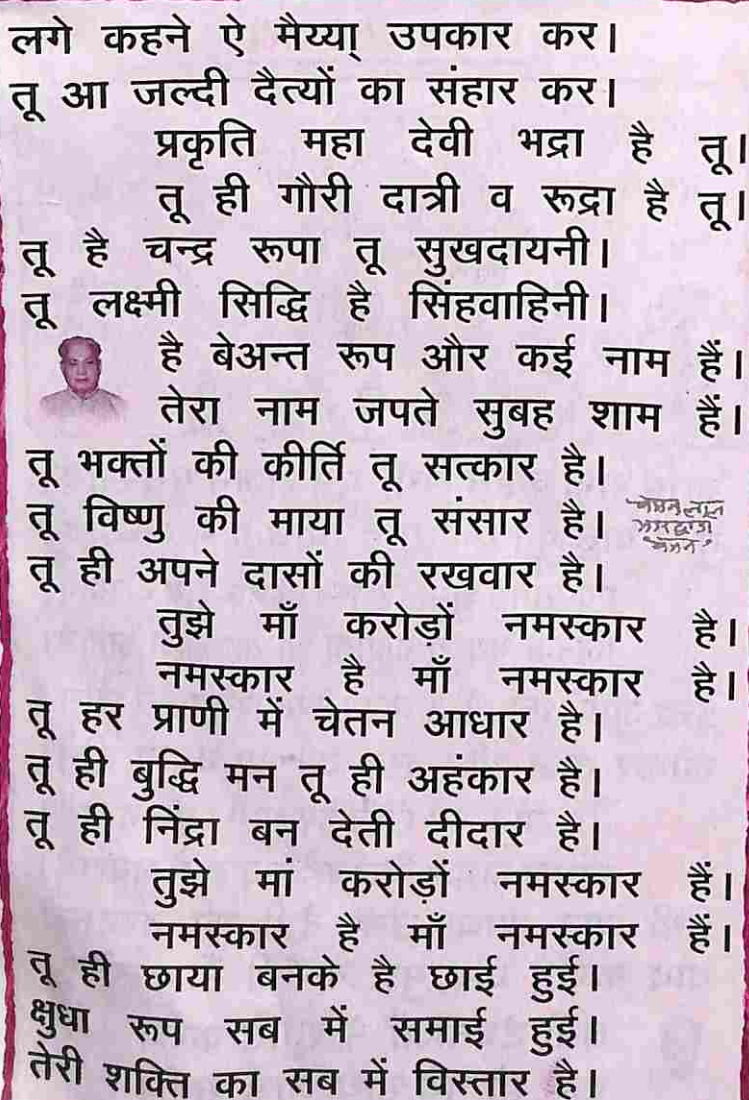 लगे कहने ऐ मैय्या् उपकार कर।
तू आ जल्दी दैत्यों का संहार कर।
प्रकृति महा देवी भद्रा है तू।
तू ही गौरी दात्री व रूद्रा है तू।
तू है चन्द्र रूपा तू सुखदायनी।
तू लक्ष्मी सिद्धि है सिंहवाहिनी।
है बेअन्त रूप और कई नाम हैं।
तेरा नाम जपते सुबह शाम हैं।
तू भक्तों की कीर्ति तू सत्कार है।
तू विष्णु की माया तू संसार है।
चमन लाल
भारद्वाज
चमन
तू ही अपने दासों की रखवार है।
तुझे माँ करोड़ों नमस्कार है।
नमस्कार है माँ नमस्कार है।
तू हर प्राणी में चेतन आधार है।
तू ही बुद्धि मन तू ही अहंकार है।
तू ही निंद्रा बन देती दीदार है।
तुझे मां करोड़ों नमस्कार हैं।
नमस्कार है माँ नमस्कार हैं।
तू ही छाया बनके है छाई हुई।
क्षुधा रूप सब में समाई हुई।
तेरी शक्ति का सब में विस्तार है।